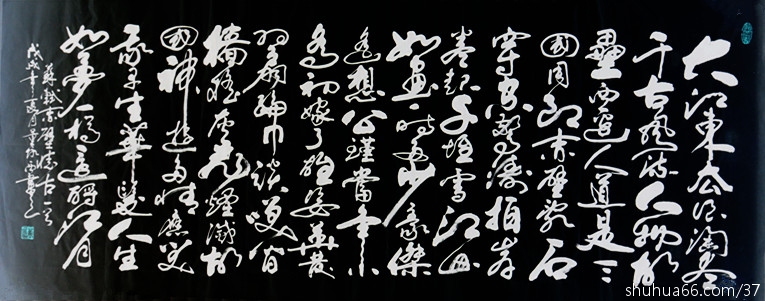 大江東去浪淘尽
千古風流人物故
壘西邊人道是三
國周郎赤壁亂石
穿空驚濤拍岸
卷起千堆雪江山
如畫一時多少豪傑
遙想公瑾當年小
喬初嫁了雄姿英發
羽扇綸巾談笑间
檣櫓灰飛煙滅故
國神遊多情應笑
我早生華髮人生
如夢一樽還酹江月
蘇軾赤壁懷古一首
戊戌年夏月
shuhua66.com/37